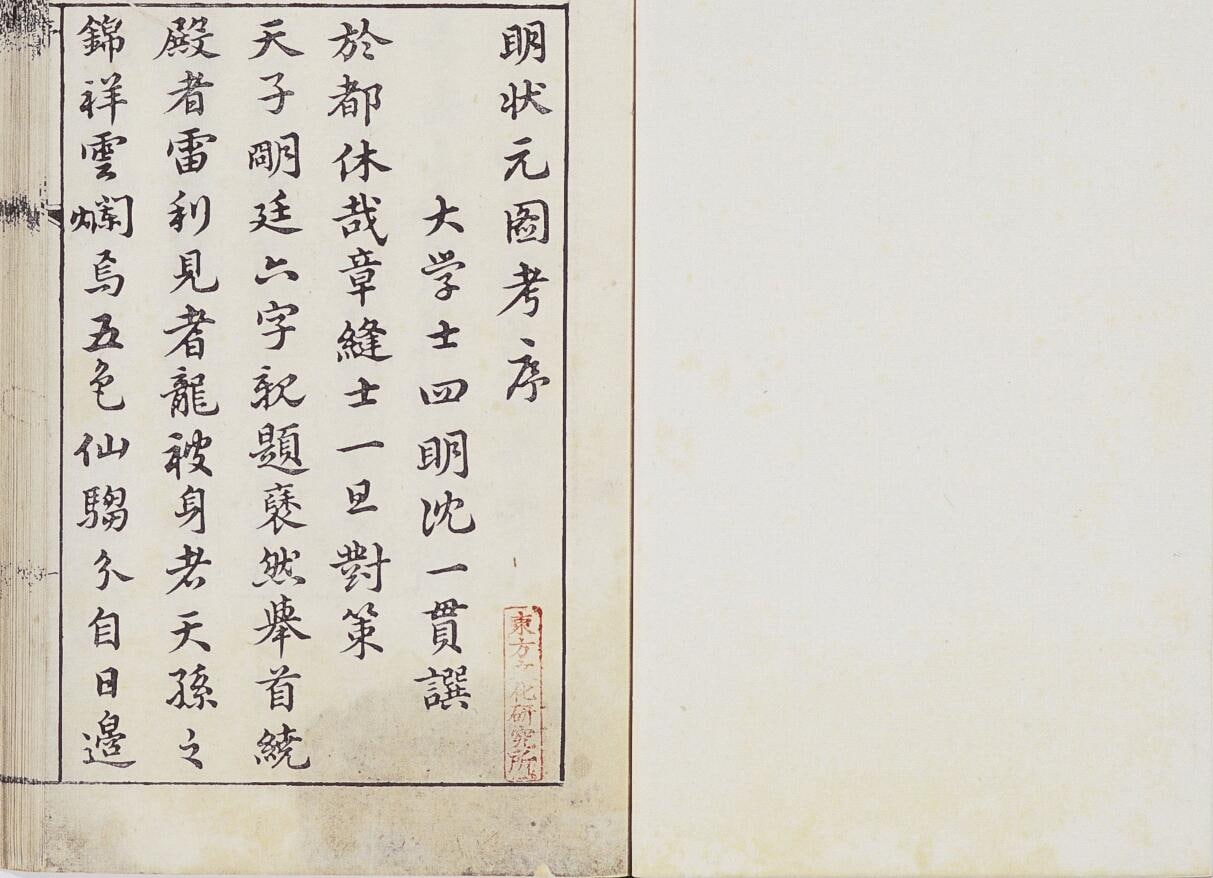 明状元圖考序
大学士四明沈一貫譔
於都休哉章縫士一旦對策
天子朙廷六字親題褎然舉首繞
殿者雷利見者龍被身者天孫之
錦祥雲爛焉五色仙騶分自日邊
東方文化研究所